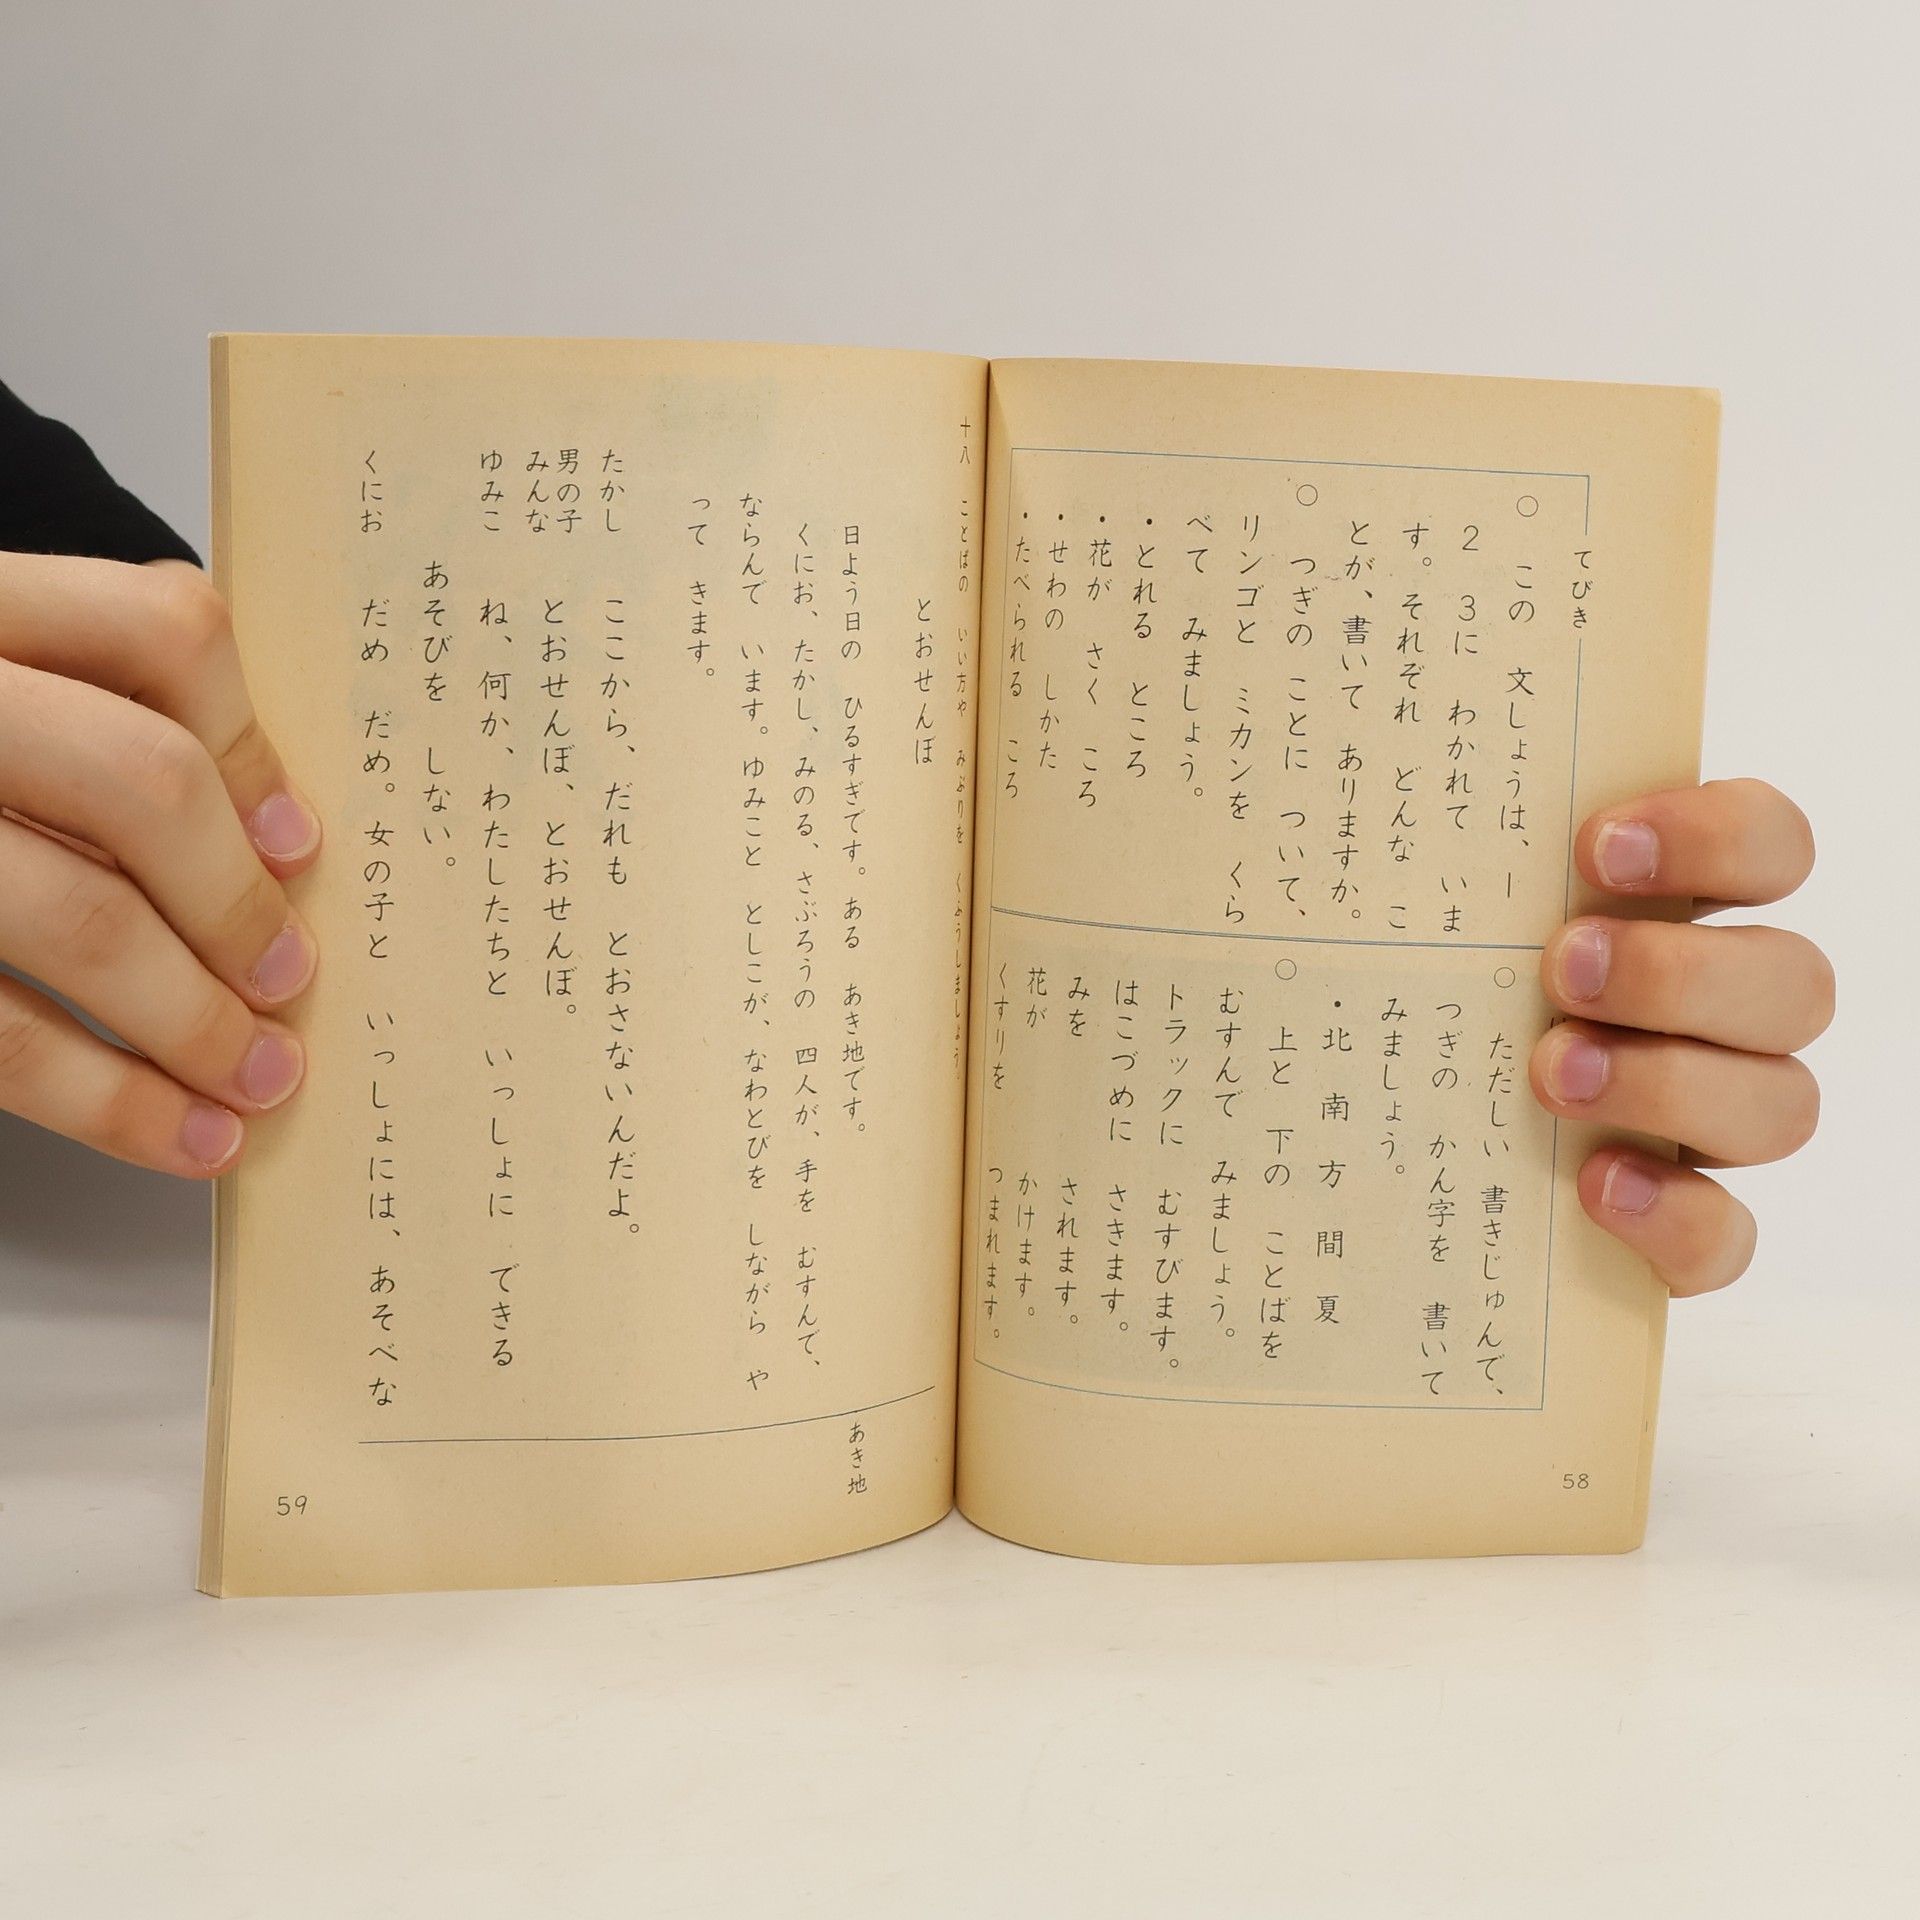 てびき
○ この 文しょうは、 1
2 3に わかれて いま
す。それぞれ どんな こ
とが、書いて ありますか。
○ つぎの ことに ついて、
リンゴと ミカンを くら
べて みましょう。
・とれる ところ
・花が さく ころ
・せわの しかた
・たべられる ころ
○ ただしい 書きじゅんで、
つぎの かん字を 書いて
みましょう。
・北 南 方 間 夏
○ 上と 下の ことばを
むすんで みましょう。
トラックに むすびます。
はこづめに さきます。
みを されます。
花が かけます。
くすりを つまれます。
58
十八 ことばの いい方や みぶりを くふうしましょう。
とおせんぼ
日よう日の ひるすぎです。ある あき地です。
くにお、たかし、みのる、さぶろうの 四人が、手を むすんで、
ならんで います。ゆみこと としこが、なわとびを しながら や
って きます。
たかし ここから、だれも とおさないんだよ。
男の子
みんな とおせんぼ、とおせんぼ。
ゆみこ ね、何か、わたしたちと いっしょに できる
あそびを しない。
くにお だめ だめ。女の子と いっしょには、あそべな
あき地
59